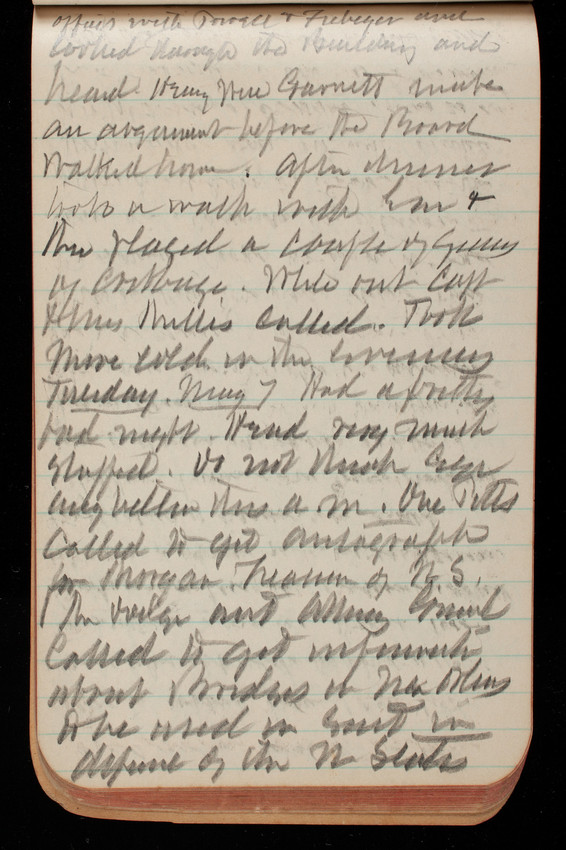 office with Powell & Fiebeger and
looked through the Building and
heard Henry Wise Garnett make
an argument before the Board
Walked home. After dinner
took a walk with Em &
then played a couple of games
of cribbage. While out Capt
& Mrs Willis called. Took
more cold in the evening
Tuesday. May 7 Had a pretty
bad night. Head very much
stopped. Do not think Eyes
any better this a m. One Titts
called to get autograph
for Morgan Treasurer of U. S.
The Judge and Attorney
called to get information
about Bridges in New Orleans
to be used in Court in
defense of the U States